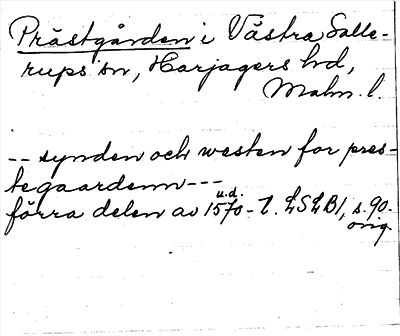 Prästgården i Västra Salle-
rups sn, Harjagers hd,
Malm. l.
-- synden och westen for pres-
tegaardenn---
u.d.
förra delen av 1570-t. LSLB1, s. 90.
orig.